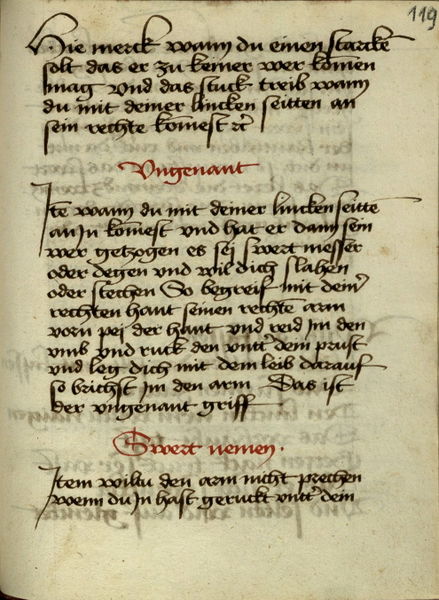 119
Hie merck wann du einen starcken
solt das er zu keiner wer komen
mag Vnd das stuck treib wann
du mit deiner lincken seitten an
sein rechte komest etc
Vngenant
Itē wann du mit deiner lincken seitte
an In komest vnd hat er dann sein
wer getzogen es sei swert messer
oder degen vnd wil dich slahen
oder stechen So begreif mit deinr
rechten hant seinen rechtē arm
vorn pei der hant vnd reid im den
vmb vnd ruck den vntter dein prust
vnd leg dich mit dem leib darauf
so brichst im den arm Das ist
der vngenant griff
Swert nemen.
Item wiltu den arm nicht prechen
wenn du In hast geruckt vntter dein